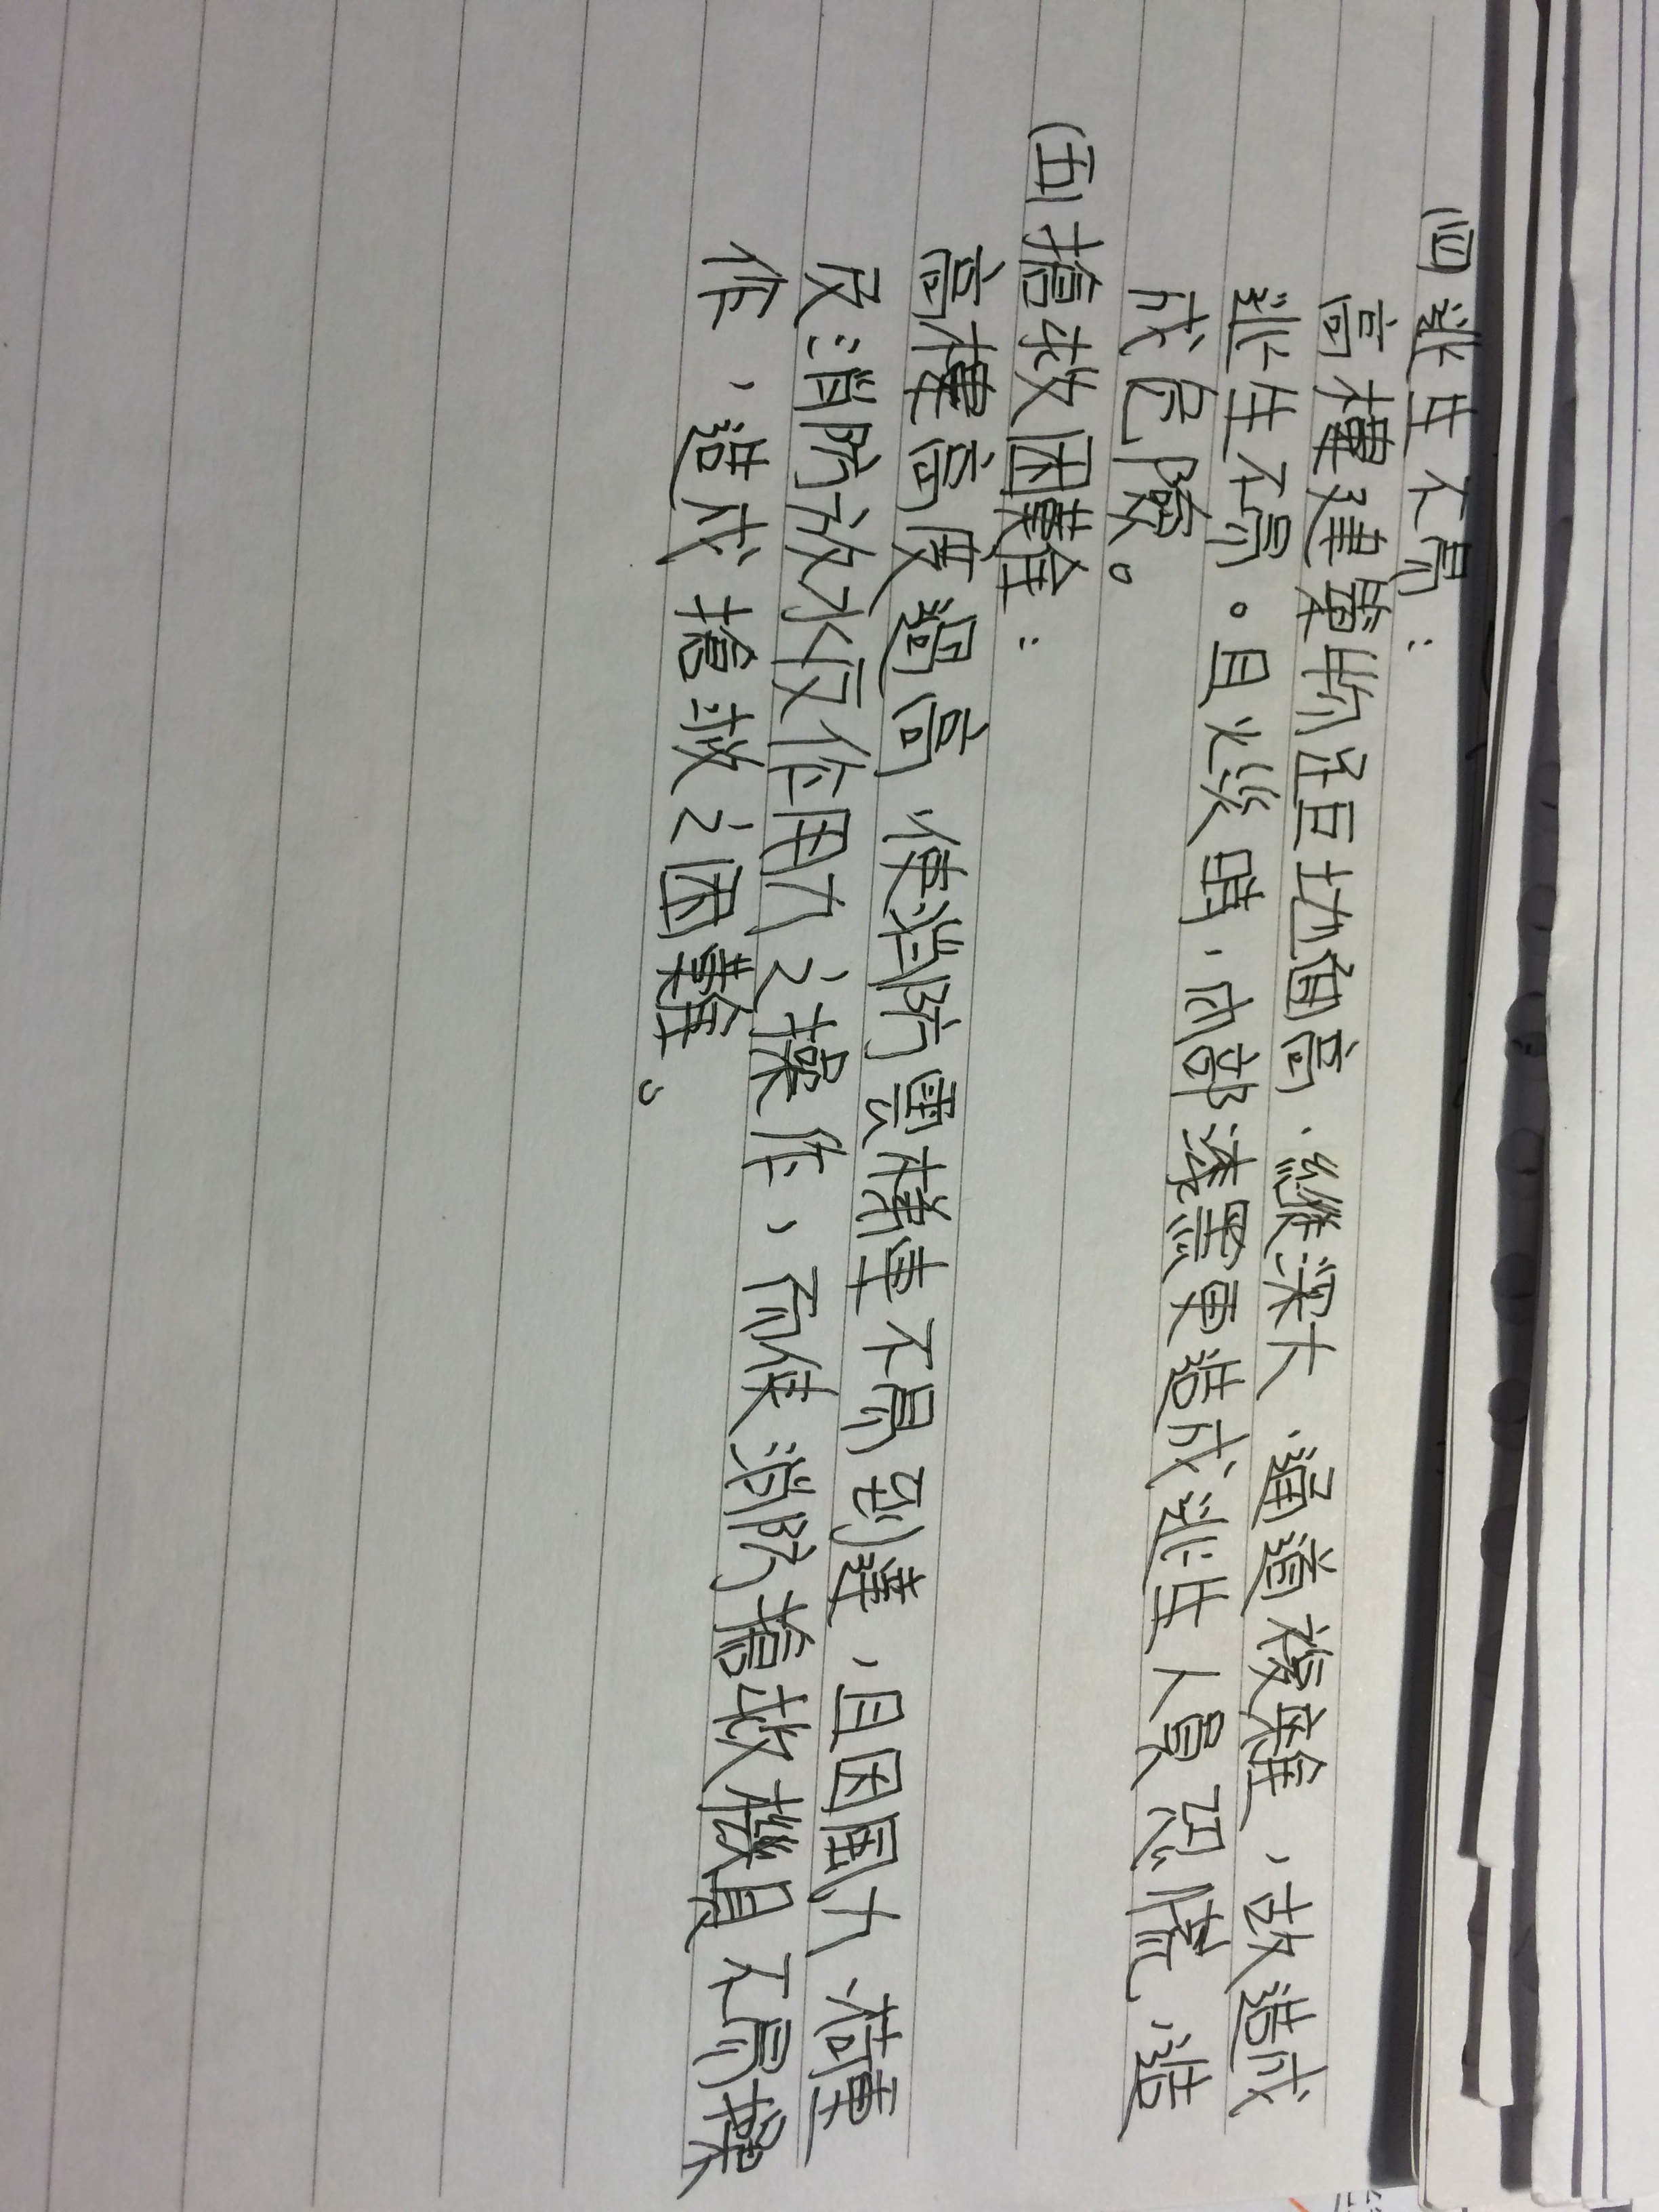 (四)逃生不易：
高樓建築物在巨地面高，縱深大，通道複雜，故造成
逃生不易。且火災時，內部漆黑更造成逃生人員恐慌，造
成危險。
(五)搶救困難：
高樓高度過高，使消防雲梯車不易到達，且因風力、荷重
及消防放水反作用力之操作，而使消防搶救機具不易操
作，造成搶救之困難。